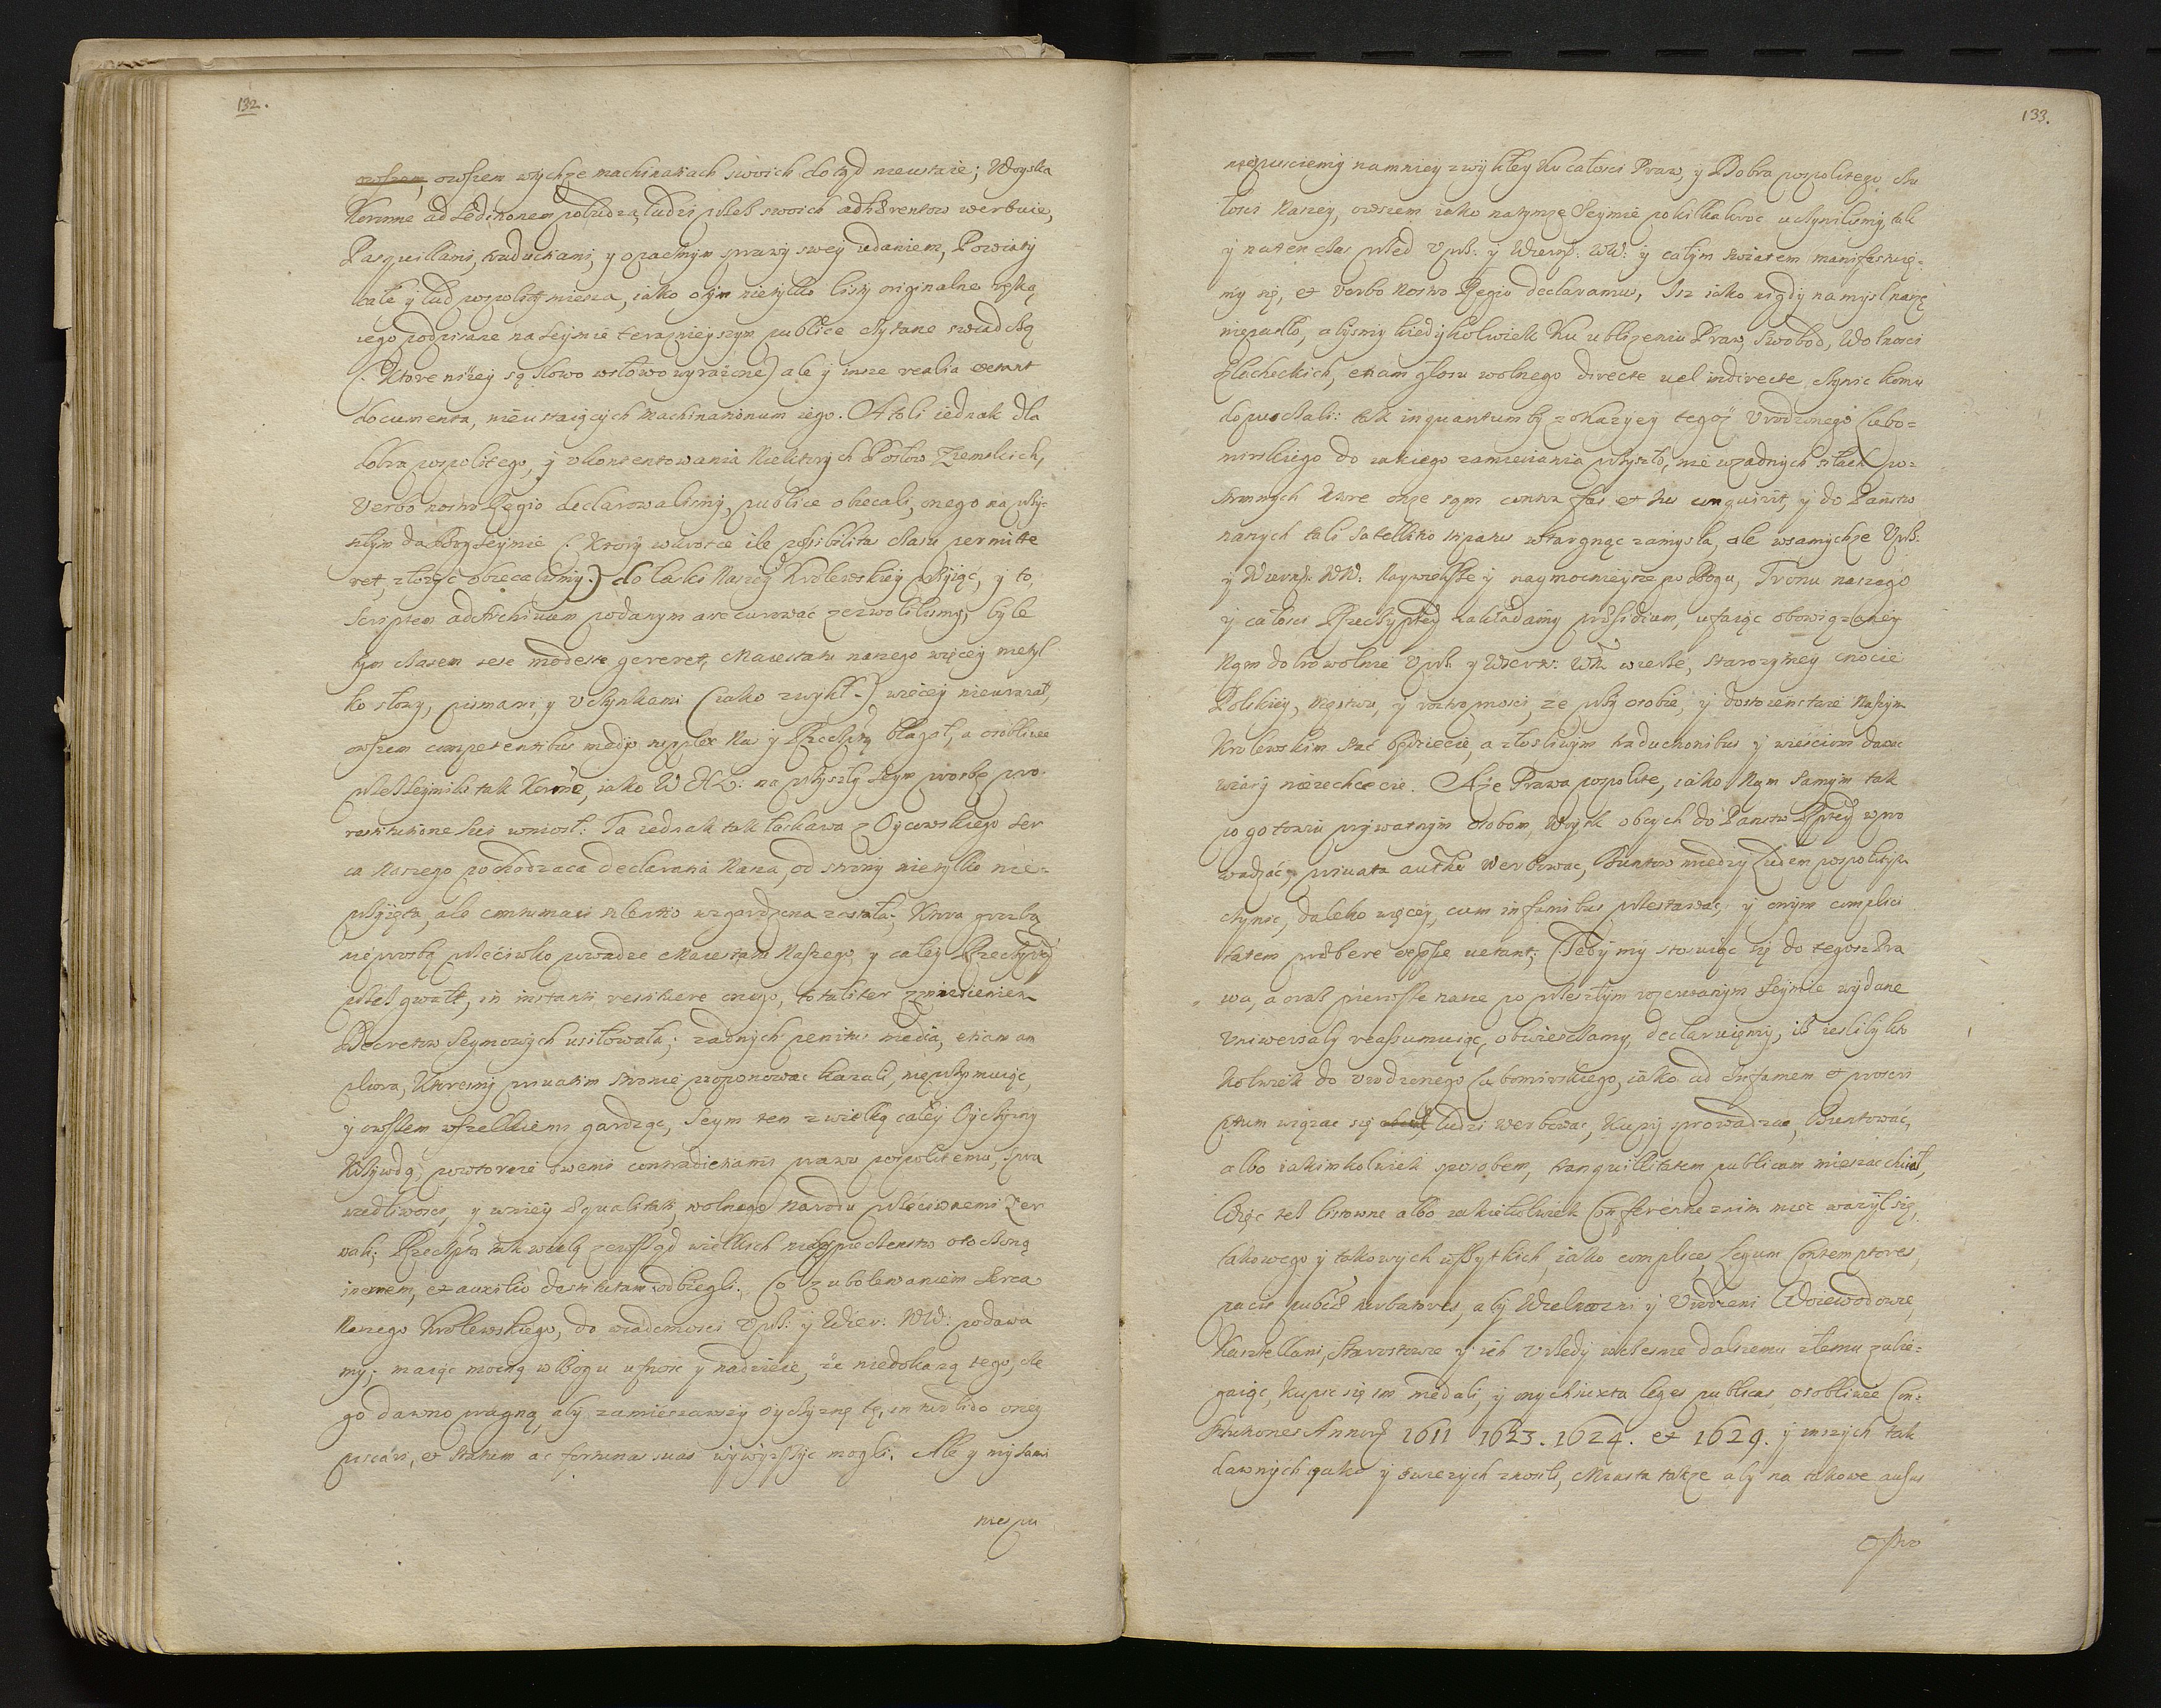 132.
owszem, owszem w tychże machinatiach swoich dotąd nieustaie; Woyska
Koronne ad Seditionem pobudza, ludzi przez swoich adhærentow werbuie,
Pasquillami, traductiami, y opacznym sprawy swey udaniem, Powiaty
całe y lud pospolity miesza, iako o tym nietylko listy originalne ręką
iego podpisane na seymie teraznieyszym publice czytane swiadczą
(: Ktore niżey są słowo w słowo wyrażone) ale y insze realia extant
documenta, nieustaiących machinationum iego. Atoli iednak dla
dobra pospolitego, y ukontentowania niektorych Posłow Ziemskich,
Verbo nostro Regio declarowalismy, publice obiecali, onego na przy-
szłym da Bog seymie (: Ktory w krotce ile possibilitas czasu permitte
ret, złożyć obiecalismy:) do łaski Naszey Krolewskiey przyiąć, y to,
Scriptem ad Archivum podanym assecurować zezwolilismy, byle
tym czasem sese modeste gereret, Maiestatu naszego więcey nietyl
ko słowy, pismami, y uczynkami (iako zwykł:) więcey nieurażał,
owszem competentibus medijs supplex Nas y Rzeczptą błagał, a osobliwie
przez Seymiki tak Koronne, iako W. X. L: na przyszły Seym prosbę pro
restitutione sui wniosł: Ta iednak tak łaskawa z Oycowskiego Ser
ca Naszego pochodząca declaratia Nasza, od strony nietylko nie-
przyięta, ale contumaci silentio wzgardzona została; Ktora grozbą
nie prosbą przeciwko powadze Maiestatu Naszego, y całey Rzeczyptey
przez gwałt, in instanti restituere onego, totaliter zniesieniem
Decretow Seymowych usiłowała; żadnych penitus media, etiam am
pliora, Ktoresmy privatim stronie proponować kazali, nieprzyimuiąc,
y owszem wszelkiemi gardząc, Seym ten z wielką całey Oyczyzny
Krzywdą, powtornie swemi contradictiami prawu pospolitemu, spra
wiedliwosci, y wniey æqualitati wolnego Narodu przeciwnemi zer
wali; Rzeczptą tak wielą zewsząd wielkich niebespieczenstw otoczoną
inermem, et auxilio destitutam odbiegli. Co z ubolewaniem Serca
Naszego Krolewskiego, do wiadomosci Uprz: y Wier: WW: podawa
my; maiąc mocną w Bogu ufnosc y nadzieie, że niedokażą tego, cze
go dawno pragną, aby zamieszawszy Oyczyznę tę, in turbido oney
piscari, et statum ac fortunas suas wywyższyc mogli. Ale y my sami
nieopu
133.
nieopuscimy namniey zwykłey ku całosci Praw, y Dobra pospolitego czu
łosci Naszey, owszem iako na tymże Seymie po kilkakroc uczynilismy, tak
y na ten czas przed Uprz: y Wiern: WW: y całym swiatem manifestuie-
my się, et Verbo Nostro Regio declaramus, Isz iako nigdy na mysl naszę
niepadło, abysmy kiedykolwiek ku ubliżeniu Praw, Swobod, Wolnosci
Szlacheckich, etiam głosu wolnego directe vel indirecte, czynic komu
dopuszczali: tak in quantum by z okazyey tegoż Urodzonego Lubo-
mirskiego do iakiego zamieszania przyszło, nie w żadnych siłach po-
stronnych ktore onże sam contra fas et ius conquirit, y do Panstw
naszych tali Satellitio stipatus wtargnąc zamysla, ale w samychże Uprz:
y Wiernych WW: Naywieksze y naymocnieysze po Bogu, Tronu naszego
y całosci Rzeczyptey zakładamy præsidium, ufaiąc obowiązaney
Nam dobrowolnie Uprz: y Wiern: WW: wierze, Starożytney cnocie
Polskiey, męstwu, y roztropnosci, że przy osobie, y dostoienstwie Naszym
Krolewskim stać będziecie, a złosliwym traductionibus y wiesciom dawac
wiary niezechcecie. A że Prawa pospolite, iako Nam Samym tak
pogotowiu prywatnym osobom, Woysk obcych do Panstw Rzptey wpro
wadzać, privata authoritate werbowac, Buntow miedzy Ludem pospolitym
czynic, daleko więcey, cum infamibus przestawać, y onym complici
tatem præbere expresse vetant; Tedy my stosuiąc się do tegosz Pra
wa, a oraz pierwsze nasze po przeszłym rozerwanym Seymie wydane
Uniwersały reassumuiąc, obwieszczamy, declaruiemy, iż iesliby kto
Kolwiek do Urodzonego Lubomirskiego, iako ad Infamem et proscri
ptum wiązac się ludzi werbowac, Kupy sprowadzac, Buntować,
albo iakimkolwiek sposobem, tranquillitatem publicam mieszac chciał,
Więc tesz listowne albo iakiekolwiek Conferentie z nim miec ważył się,
takowego y takowych wszytkich, iako complices, Legum Contemptores,
pacis publicæ turbatores, aby Wielmożni y Urodzeni Woiewodowie,
Kasztellani, Starostowie y ich Urzędy wczesnie dalszemu złemu zabie-
gaiąc, kupic się im niedali, y onych iuxta leges publicas, osobliwie Con-
stitutiones Annorum 1611 1623. 1624. et 1629. y inszych tak
dawnych iako y swiezych znosili, Miasta także aby na takowe ausus
ostro